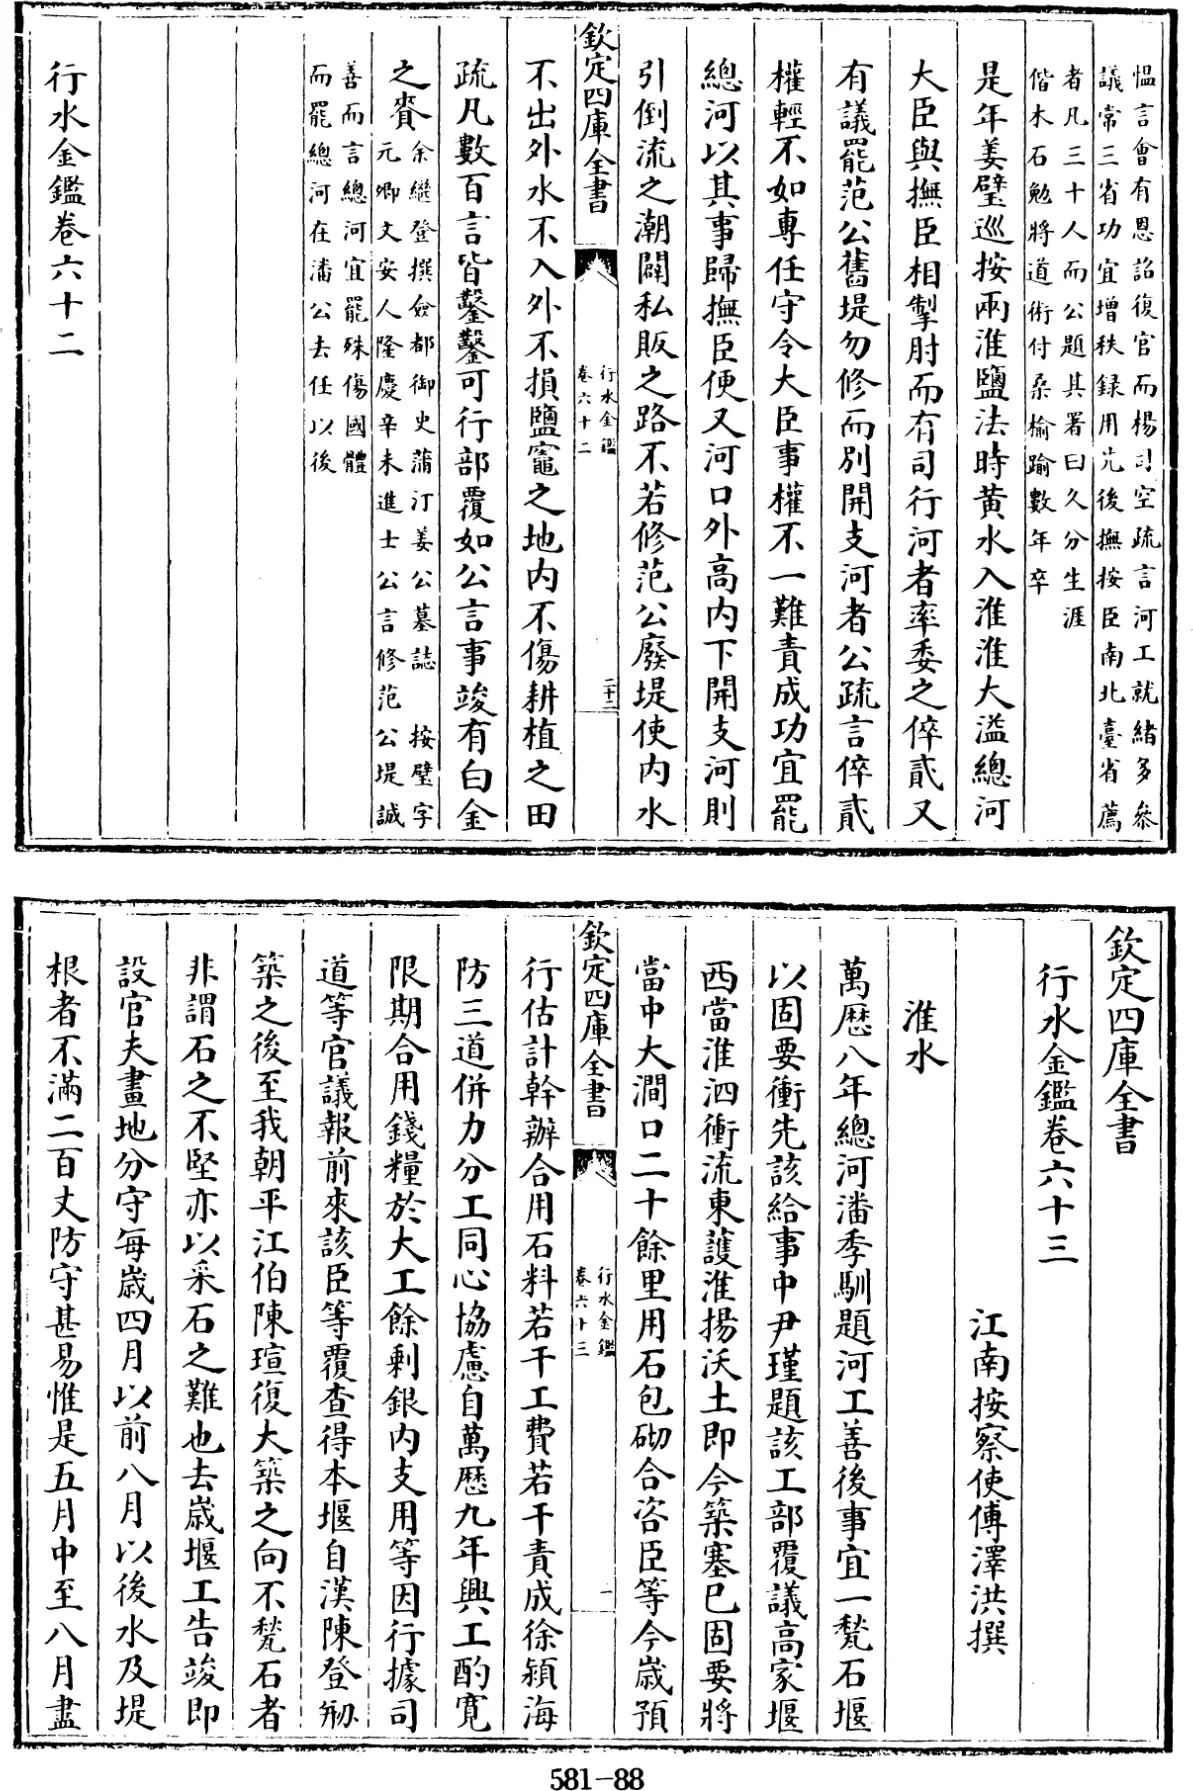 愠言會有恩詔復官而楊司空疏言河工就緒多叅
議常三省功宜增秩録用亢後撫按臣南北臺省薦
者凡三十人而公題其署曰久分生涯
偕木石勉將道術付桑榆踰數年卒
是年姜璧巡按兩淮鹽法時黄水入淮淮大溢總河
大臣與撫臣相掣肘而有司行河者率委之倅貳又
有議罷范公舊堤勿修而別開支河者公疏言倅貳
權輕不如專任守令大臣事權不一難責成功宜罷
總河以其事歸撫臣便又河口外高内下開支河則
引倒流之潮闢私販之路不若修范公廢堤使内水
欽定四庫全書
行水金鑑
卷六十二
二十二
不出外水不入外不損鹽竈之地内不傷耕植之田
疏凡數百言皆鑿鑿可行部覆如公言事竣有白金
之賚
余繼登撰僉都御史蒲汀姜公墓誌 按璧字
元卿文安人隆慶辛未進士公言修范公堤誠
善而言總河宜罷殊傷國體
而罷總河在潘公去任以後
行水金鑑卷六十二
欽定四庫全書
行水金鑑卷六十三
江南按察使傅澤洪撰
淮水
萬歴八年總河潘季馴題河工善後事宜一甃石堰
以固要衝先該給事中尹瑾題該工部覆議高家堰
西當淮泗衝流東護淮揚沃土即今築塞已固要將
當中大澗口二十餘里用石包砌合咨臣等今歳預
欽定四庫全書
行水金鑑
卷六十三
一
行估計幹辦合用石料若干工費若干責成徐潁海
防三道併力分工同心協慮自萬歴九年興工酌寛
限期合用錢糧於大工餘剩銀内支用等因行據司
道等官議報前來該臣等覆查得本堰自漢陳登剏
築之後至我朝平江伯陳瑄復大築之向不甃石者
非謂石之不堅亦以采石之難也去歳堰工告竣即
設官夫畫地分守每歳四月以前八月以後水及堤
根者不滿二百丈防守甚易惟是五月中至八月盡
581-88